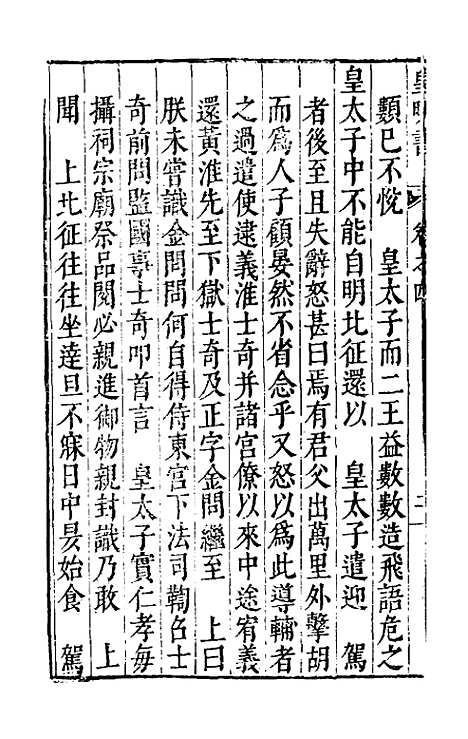 皇明書 卷之四
顥已不悅 皇太子而二王益數數造飛語危之
皇太子中不能自明北征還以 皇太子遣迎 駕
者後至且失辭怒甚曰焉有君父出萬里外擊胡
而爲人子顧晏然不省念乎又怒以爲此導輔者
之過遣使逮義淮士奇并諸宮僚以來中途宥義
還黃淮先至下獄士奇及正字金問繼至 上曰
朕未嘗識金問問何自得侍東宮下法司鞫召士
奇前問監國事士奇叩首言 皇太子實仁孝每
攝祠宗廟祭品閱必親進御物親封識乃敢 上
聞 上北征往往坐達旦不寐日中昃始食 駕